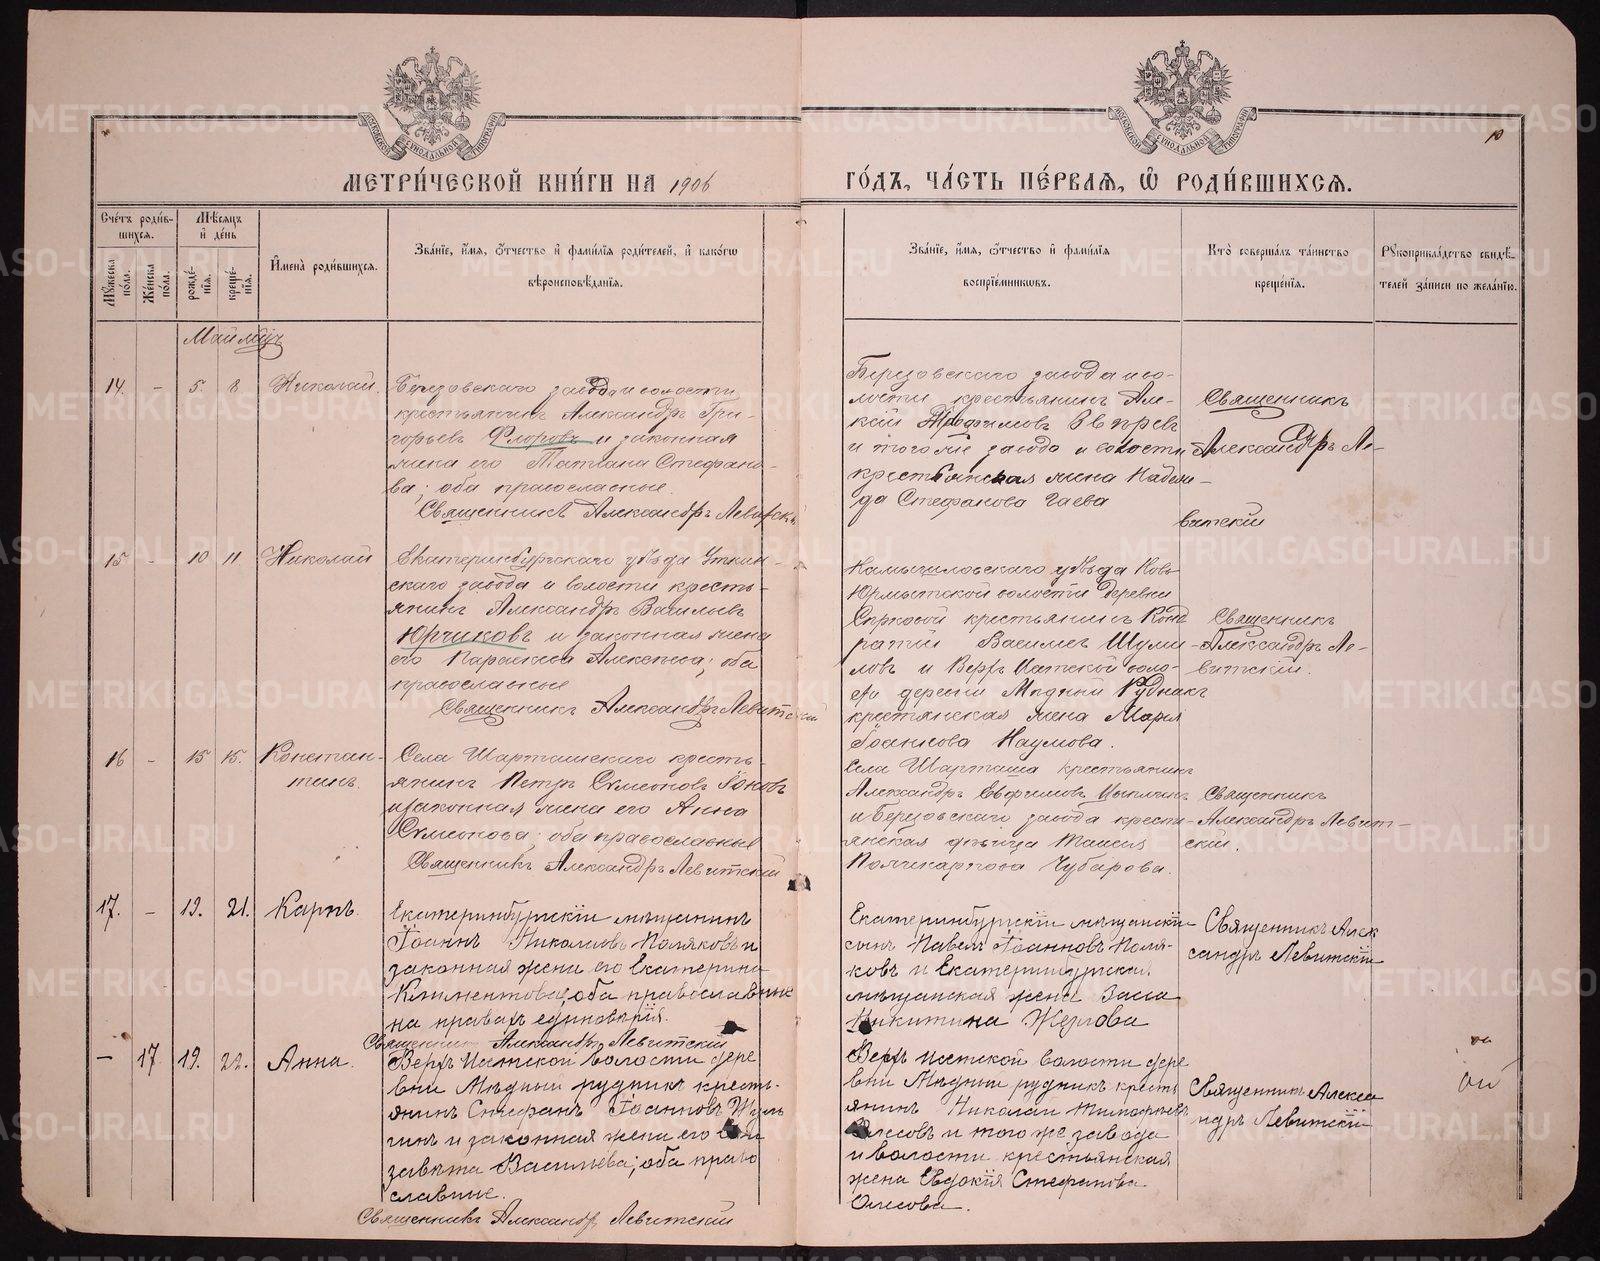 МЕТРИ́ЧЕСКОЙ КНИ́ГИ НА 1906
ГО́ДЪ, ЧА́СТЬ ПЕ́РВАѦ, Ѡ҆ РОДИ́ВШИХСѦ.
10
Сче́тъ роди́в-
шихсѧ.
Мꙋ́жеска по́ла.
Же́нска по́ла.
Мѣ́сѧцъ
и҆ де́нь
рожде́-
нїѧ.
креще́-
нїѧ.
И҆мена̀ роди́вшихсѧ.
Зва́нїе, и҆́мѧ, ѻ҆́тчество и҆ фами́лїѧ роди́телей, и҆ како́гѡ
вѣроисповѣ́данїѧ.
Зва́нїе, и҆́мѧ, ѻ҆́тчество и҆ фами́лїѧ
воспрїе́мникѡвъ.
Кто̀ соверша́лъ та́инство
креще́нїѧ.
Рꙋкоприкла́дство свидѣ́-
телей за́писи по жела́нїю.
Май мцъ
14. - 5. 8. Николай.
Березовскаго завода и волости
крестьянинъ Александръ Гри-
горьевъ Флоровъ и законная
жена его Татіана Стефано-
ва; оба православные.
Священникъ Александръ Левитскі
Березовскаго завода и во-
лости крестьянинъ Але-
ксій Трофимовъ Звѣревъ
и того же завода и волости
крестьянская жена Надеж-
да Стефанова Гаева
Священникъ
Александръ Ле-
витскій
15 - 10 11 Николай
Екатеринбургскаго уѣзда Уткин-
скаго завода и волости кресть-
янинъ Александръ Васильевъ
Юрчиковъ и законная жена
его Параскева Алексѣева; оба
православные
Священникъ Александръ Левитскій
Камышловскаго уѣзда Ново
Юрмытской волости деревни
крестьянинъ Конд
ратій Васильевъ Шуми
ловъ и Верхъ Исетской воло-
сти деревни Мѣдный Рудникъ
крестьянская жена Марія
Іоаннова Наумова.
Священникъ
Александръ Ле-
витскій.
16 - 15 15. Констан-
тинъ.
Села Шарташскаго кресть-
янинъ Петръ Симеоновъ Іоновъ
и законная жена его Анна
Симеонова; оба православные
Священникъ Александръ Левитскій
Села Шарташа крестьянинъ
Александръ Евфимовъ Цыпинъ
и Березовскаго завода кресть-
янская дѣвица Таисія
Поликарпова Чубарова.
Священникъ
Александръ Левит-
скій.
17. - 19. 21. Карпъ.
Екатеринбургскій мѣщанинъ
Іоаннъ Николаевъ Поляковъ и
законная жена его Екатерина
Климентова, оба православные
на правахъ единовѣрія.
Священникъ Александръ Левитскій
Екатеринбургскій мѣщанскій
сынъ Павелъ Іоанновъ Поля-
ковъ и Екатеринбургская
мѣщанская жена Васса
Никитина Жерлова
Священникъ Алек
сандръ Левитскій
- 17 19. 22. Анна.
Верхъ Исетской волости дере
вни Мѣдный рудникъ кресть-
янинъ Стефанъ Іоанновъ Жуль
гинъ и законная жена его Ели
завета Васильева; оба право
славные.
Священникъ Александръ Левитскій
Верхъ Исетской волости дере
вни Мѣдный рудникъ кресть
янинъ Николай Тимофеевъ
Олесовъ и того же завода
и волости крестьянская
жена Евдокія Стефанова
Олесова.
Священникъ Алекса
ндръ Левитскій
METRIKI.GASO-URAL.RU